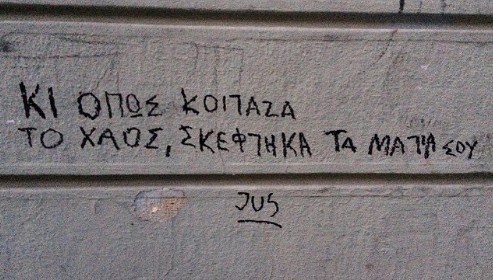 ΚΙ ΟΠΩΣ ΚΟΙΤΑΖΑ
ΤΟ ΧΑΟΣ, ΣΚΕΦΤΗΚΑ ΤΑ ΜΑΤΙΑ ΣΟΥ
JUS